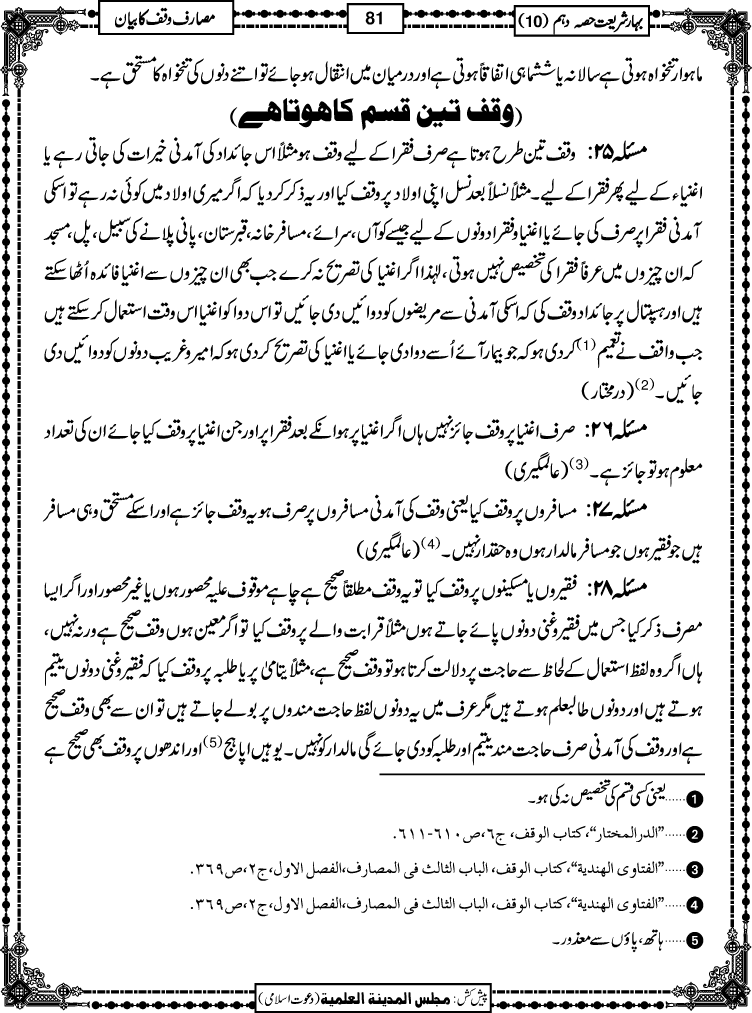 بہار شریعت حصہ دہم (10)
81
مصارف وقف کا بیان
ماہوار تنخواہ ہوتی ہے سالانہ یا ششماہی اتفاقاً ہوتی ہے اور درمیان میں انتقال ہو جائے تو اتنے دنوں کی تنخواہ کا مستحق ہے۔
(وقف تین قسم کا ہوتا ہے)
مسئلہ ۲۵: وقف تین طرح ہوتا ہے صرف فقرا کے لیے وقف ہو مثلاً اس جائداد کی آمدنی خیرات کی جاتی رہے یا
اغنیاء کے لیے پھر فقرا کے لیے۔ مثلاً نسلاً بعد نسل اپنی اولاد پر وقف کیا اور یہ ذکر کر دیا کہ اگر میری اولاد میں کوئی نہ رہے تو اسکی
آمدنی فقرا پر صرف کی جائے یا اغنیا و فقرا دونوں کے لیے جیسے کوآں، سرائے، مسافر خانہ، قبرستان، پانی پلانے کی سبیل، پل، مسجد
کہ ان چیزوں میں عرفاً فقرا کی تخصیص نہیں ہوتی، لہٰذا اگر اغنیا کی تصریح نہ کرے جب بھی ان چیزوں سے اغنیا فائدہ اُٹھا سکتے
ہیں اور ہسپتال پر جائداد وقف کی کہ اسکی آمدنی سے مریضوں کو دوائیں دی جائیں تو اس دوا کو اغنیا اس وقت استعمال کر سکتے ہیں
جب واقف نے تعمیم (1) کر دی ہو کہ جو بیمار آئے اُسے دوا دی جائے یا اغنیا کی تصریح کر دی ہو کہ امیر و غریب دونوں کو دوائیں دی
جائیں۔ (2) (درمختار)
مسئلہ ۲۶: صرف اغنیا پر وقف جائز نہیں ہاں اگر اغنیا پر ہو انکے بعد فقرا پر اور جن اغنیا پر وقف کیا جائے ان کی تعداد
معلوم ہو تو جائز ہے۔ (3) (عالمگیری)
مسئلہ ۲۷: مسافروں پر وقف کیا یعنی وقف کی آمدنی مسافروں پر صرف ہو یہ وقف جائز ہے اور اسکے مستحق وہی مسافر
ہیں جو فقیر ہوں جو مسافر مالدار ہوں وہ حقدار نہیں۔ (4) (عالمگیری)
مسئلہ ۲۸: فقیروں یا مسکینوں پر وقف کیا تو یہ وقف مطلقاً صحیح ہے چاہے موقوف علیہ محصور ہوں یا غیر محصور اور اگر ایسا
مصرف ذکر کیا جس میں فقیر و غنی دونوں پائے جاتے ہوں مثلاً قرابت والے پر وقف کیا تو اگر معین ہوں وقف صحیح ہے ورنہ نہیں،
ہاں اگر وہ لفظ استعمال کے لحاظ سے حاجت پر دلالت کرتا ہو تو وقف صحیح ہے، مثلاً یتامیٰ پر یا طلبہ پر وقف کیا کہ فقیر و غنی دونوں یتیم
ہوتے ہیں اور دونوں طالبعلم ہوتے ہیں مگر عرف میں یہ دونوں لفظ حاجت مندوں پر بولے جاتے ہیں تو ان سے بھی وقف صحیح
ہے اور وقف کی آمدنی صرف حاجت مند یتیم اور طلبہ کو دی جائے گی مالدار کو نہیں۔ یوہیں اپاہج (5) اور اندھوں پر وقف بھی صحیح ہے
1 ......یعنی کسی قسم کی تخصیص نہ کی ہو۔
2 ......"الدرالمختار"، کتاب الوقف، ج٦، ص ٦١٠-٦١١.
3 ......"الفتاوی الهندية"، کتاب الوقف، الباب الثالث فی المصارف، الفصل الاول، ج٢، ص ٣٦٩.
4 ......"الفتاوی الهندية"، کتاب الوقف، الباب الثالث فی المصارف، الفصل الاول، ج٢، ص ٣٦٩.
5 ......ہاتھ، پاؤں سے معذور۔
پیش کش: مجلس المدینۃ العلمیۃ (دعوت اسلامی)